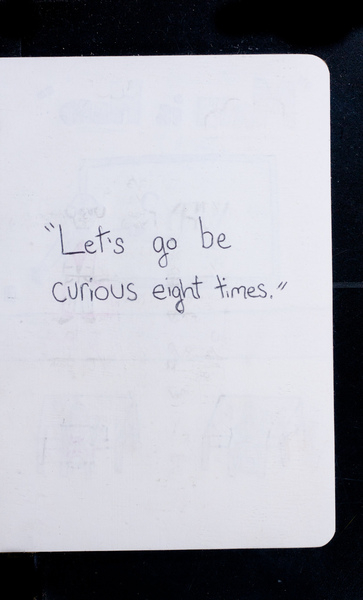 "Let's go be
curious eight times."